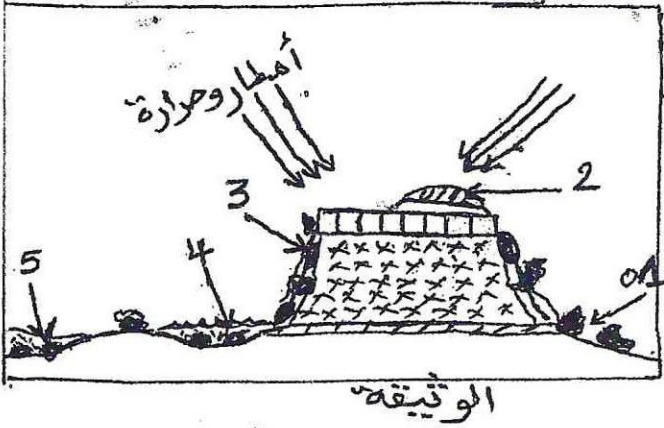 أمطار وحرارة
2
3
4
5
01
الوثيقة